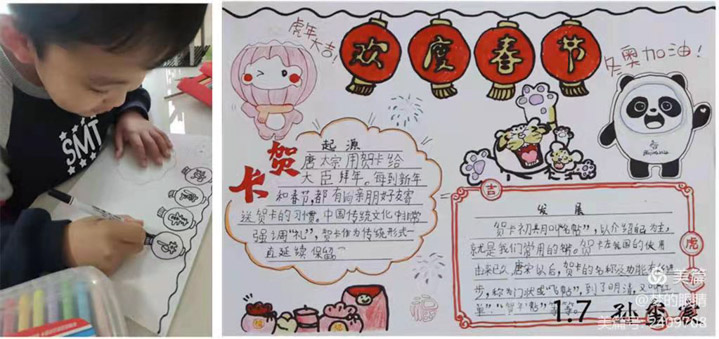 SMT
欢度春节
虎年
大吉!
冬奥加油!
贺卡
起源
唐太宗用贺卡给
大臣拜年。每到新年
和春节,都有向亲朋好友寄
送贺卡的习惯,中国传统文化中非常
强调"礼",贺卡作为传统形式一
直延续保留
吉
虎
发展
贺卡初具用以介绍自己为主,
就是我们常用的
贺卡在我国的使用
由来已久唐宋以后,贺卡的名称及功能
步,称为门状或"飞帖",到了明清,又
福
1.7
美篇